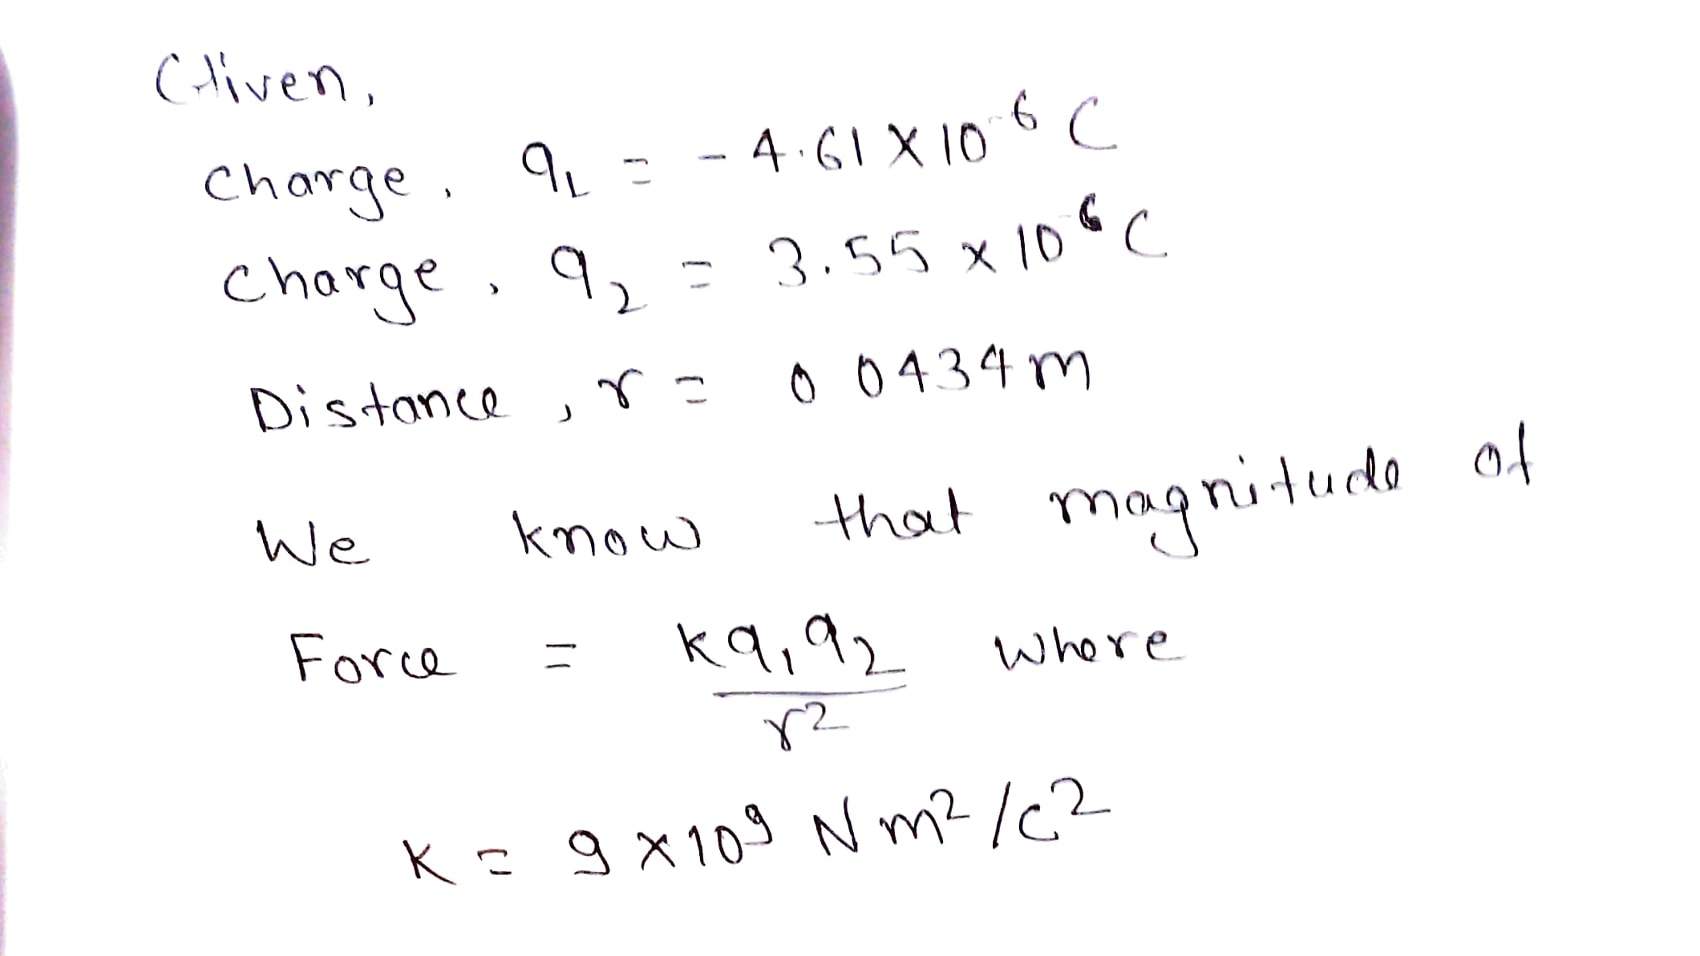 Given,
Charge, q₁ = - 4.61 × 10⁻⁶ C
Charge, q₂ = 3.55 × 10⁻⁶ C
Distance, r = 0 0434 m
We know that magnitude of
Force = kq₁q₂ / r² where
K = 9 × 10⁹ N m² / c²